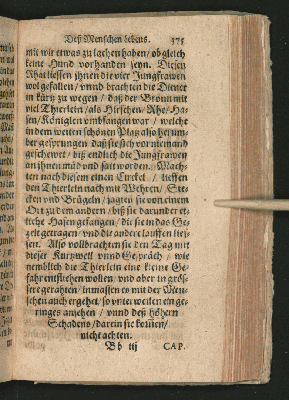 Deß Menschen lebens. 375
mit wir etwas zu lachen haben / ob gleich
keine Hund vorhanden seyn. Diesen
Rhat liessen jhnen die vier Jungfrawen
wol gefallen / vnnd brachten die Diener
in kürtz zu wegen / daß der Bronn mit
viel Thierlein / als Hirschen / Rhe / Ha-
sen / Königlen vmbfangen war / welche
in dem weiten schönen Platz also her um-
ber gesprungen daß sie sich vor niemand
geschewet / biß endlich die Jungfrawen
an jhnen müd vnd satt worden. Mach-
ten nach diesem einen Circkel / lieffen
den Thierlein nach mit Wehren / Ste-
cken vnd Brügeln / jagten sie von einem
Ort zu dem andern / biß sie darunder et-
liche Hasen gefangen / die sie in das Ge-
zelt getragen / vnd die andern lauffen lies-
sen. Also vollbrachten sie den Tag mit
dieser Kurtzweil vnnd Gespräch / wie
nemblich die Thierlein eine kleine Ge-
fahr entfliehen wollen / vnd aber in grös-
sere gerahten / inmassen es mit der Men-
schen auch ergehet / so vnterweilen ein ge-
ringes ansehen / vnnd deß höhern
Schadens / darein sie kommen /
nicht achten.
Bb iij CAP.